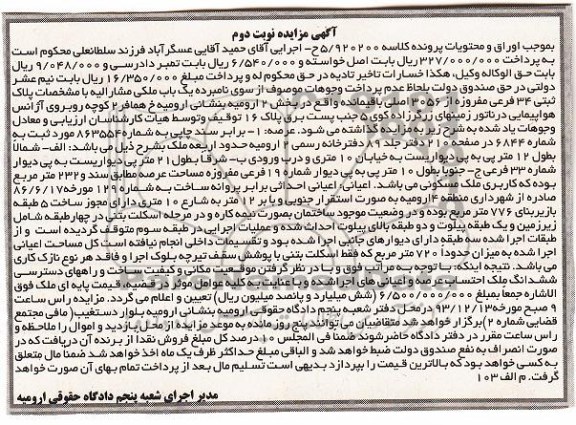 آگهی مزایده نوبت دوم
بموجب اوراق و محتویات پرونده کلاسه ۵/۹۲۰۲۰۰ح- اجرایی آقای حمید آقایی عسگرآباد فرزند سلطانعلی محکوم است
به پرداخت ۳۲۷/۰۰۰/۰۰۰ ریال بابت اصل خواسته و ۶/۵۴۰/۰۰۰ ریال بابت تمبر دادرسی و ۹/۰۴۸/۰۰۰ ریال
بابت حق الوکاله وکیل، هکذا خسارات تاخیر تادیه در حق محکوم له و پرداخت مبلغ ۱۶/۳۵۰/۰۰۰ ریال بابت نیم عشر
دولتی در حق صندوق دولت بلحاظ عدم پرداخت وجوهات موصوف از سوی نامبرده یک باب ملکی مشارالیه با مشخصات پلاک
ثبتی ۳۴ فرعی مفروزه از ۳۰۵۶ اصلی باقیمانده واقع در بخش ۲ ارومیه بنشانی ارومیه خ همافر ۲ کوچه روبروی آژانس
هواپیمایی درناتور زمینهای زرگرزاده کوی ۵ جنب پست برق پلاک ۱۶ توقیف و توسط هیات کارشناسان ارزیابی و معادل
وجوهات یاد شده به شرح زیر به مزایده گذاشته می شود. عرصه: ۱- برابر سند چاپی به شماره ۸۶۳۵۵۴ مورد ثبت به
شماره ۶۸۴۴ در صفحه ۷ و دفتر جلد ۸۹ دفترخانه رسمی ۲ ارومیه حدود اربعه ملک بشرح ذیل می باشد: الف- شمالا
بطول ۱۲ متر پی به پی دیواریست به خیابان ۱۰ متری و درب ورودی ب- شرقا بطول ۲۱ متر پی دیواریست به پی دیوار
شماره ۳۳ فرعی ج- جنوبا بطول ۱۰ متر پی به پی دیوار شماره ۱۹ فرعی مفروزه مساحت عرصه مطابق سند و ۲۳۲ متر مربع
بوده که کاربری ملک مسکونی می باشد. اعیانی: اعیانی احداثی برابر پروانه ساخت به شماره ۱۲۹ مورخه ۸۶/۶/۱۷
صادره از شهرداری منطقه ۴ ارومیه به صورت استقرار جنوبی و با بر ۱۲ متر به شارع ۱۰ متری دارای مجوز ساخت ۵ طبقه
بازیربنای ۷۷۶ متر مربع بوده و در وضعیت موجود ساختمان بصورت نیمه کاره و در مرحله اسکلت بتنی در چهار طبقه شامل
زیرزمین و یک طبقه پیلوت و دو طبقه بالای پیلوت احداث شده و عملیات اجرایی در طبقه سوم متوقف گردیده است و از
طبقات اجرا شده سه طبقه دارای دیوارهای جانبی اجرا شده بود و تقسیمات داخلی انجام نیافته است کل مساحت اعیانی
اجرا شده به میزان حدودا ۷۲۰ متر مربع که فقط اسکلت بتنی با پوشش سقف تیرچه بلوک اجرا و فاقد هر نوع نازک کاری
می باشد. نتیجه اینکه: با توجه به مراتب فوق و با در نظر گرفتن موقعیت مکانی و کیفیت ساخت و راههای دسترسی
ششدانگ ملک احتساب عرصه و اعیانی های اجرا شده و با عنایت به کلیه عوامل موثر در قضیه، قیمت پایه ای ملک فوق
الاشاره جمعا بمبلغ ۶/۵۰۰/۰۰۰/۰۰۰ (شش میلیارد و پانصد میلیون ریال) تعیین و اعلام می گردد. مزایده راس ساعت
۹ صبح مورخه ۹۳/۱۲/۱۳ در محل دفتر شعبه پنجم دادگاه حقوقی ارومیه بنشانی ارومیه بلوار دستغیب (مافی مجتمع
قضایی شماره ۲) برگزار خواهد شد متقاضیان می توانند پنج روز مانده به موعد مزایده از محل بازدید و اموال را ملاحظه و
راس ساعت مقرر در دفتر دادگاه حاضر شوند ضمنا فی المجلس ۱۰ درصد کل مبلغ فروش نقدا از برنده آن دریافت که در
صورت انصراف به نفع صندوق دولت ضبط خواهد شد و الباقی مبلغ حداکثر ظرف یک ماه اخذ خواهد شد ضمنا مال متعلق
به کسی خواهد بود که بالاترین قیمت را بپردازد بدیهی است تسلیم مال بعد از پرداخت تمام بهای آن صورت خواهد
گرفت. م الف ۱۰۳
مدیر اجرای شعبه پنجم دادگاه حقوقی ارومیه